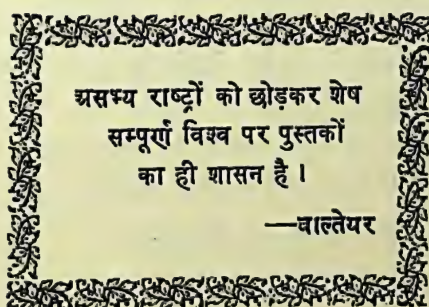 असभ्य राष्ट्रों को छोड़कर शेष
सम्पूर्ण विश्व पर पुस्तकों
का ही शासन है ।
—वाल्तेयर